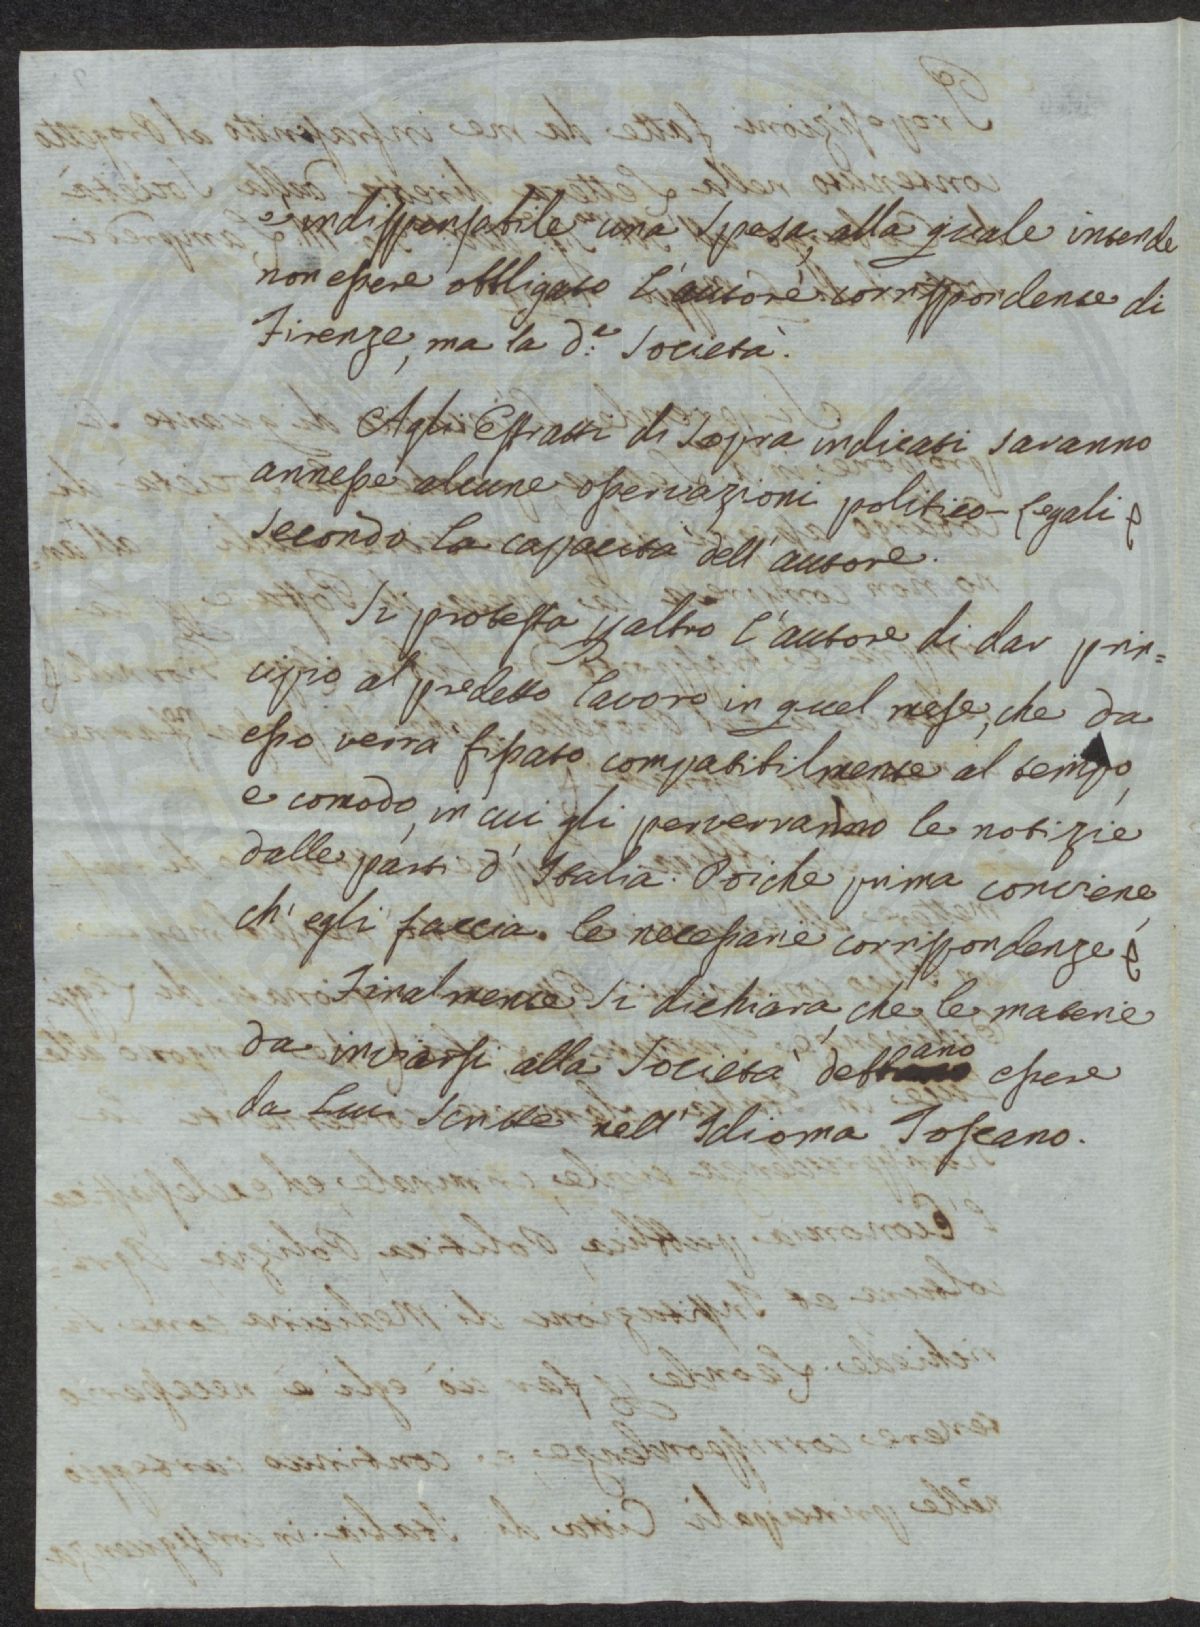 è indisppensabile una spesa, alla quale intende
non essere obbligato l'autore corrisppondente di
Firenze, ma la d.ª Società.
Agli Estratti di sopra indicati saranno
annesse alcune osservazioni politico-legali
secondo la capacità dell'autore.
Si protesta paltro l'autore di dar prin=
cipio al predetto lavoro in quel mese, che da
esso verrà fissato compatibilmente al tempo,
e comodo, in cui gli perverranno le notizie
dalle parti d'Italia. Poiche prima conviene,
ch'egli faccia le necessarie corrisppondenze
Finalmente si dichiara, che le materie
da inviarsi alla Società debbano essere
da Lui scritte nell'Idioma Toscano.